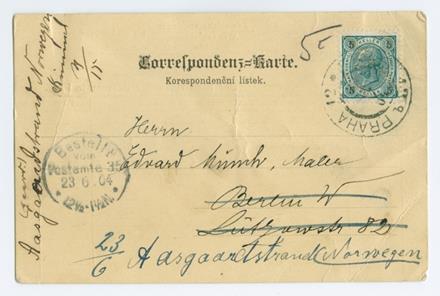 5
5 5
Correspondenz=Karte.
Korespondenční lístek.
PRAHA
Herrn
Edvard Munch, Maler
Berlin W
Lützowstr 82
23/6 Aasgaardstrand Norwegen
Aasgaardstrand Norwegen
Bestellt
vom
Postamte 35
23 6 04
12½-1½N.